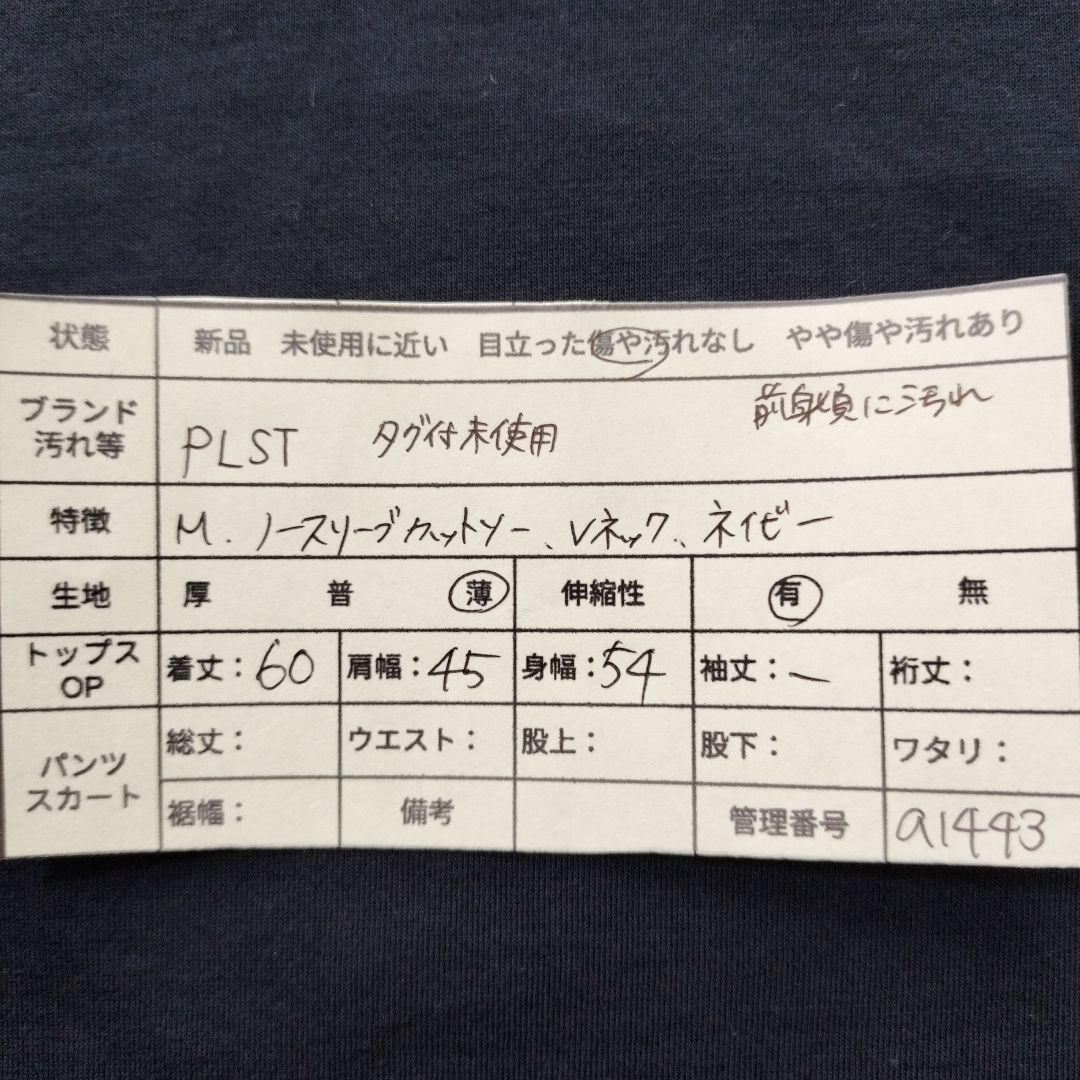 状態 新品 未使用に近い 目立った傷や汚れなし やや傷や汚れあり
ブランド 汚れ等 PLST タグ付未使用 前身頃に汚れ
特徴 M. ノースリーブカットソー、Vネック、ネイビー
生地 厚 普 薄 伸縮性 有 無
トップス OP 着丈:60 肩幅:45 身幅:54 袖丈:— 裄丈:
パンツ スカート 総丈: ウエスト: 股上: 股下: ワタリ:
裾幅: 備考 管理番号 a1443